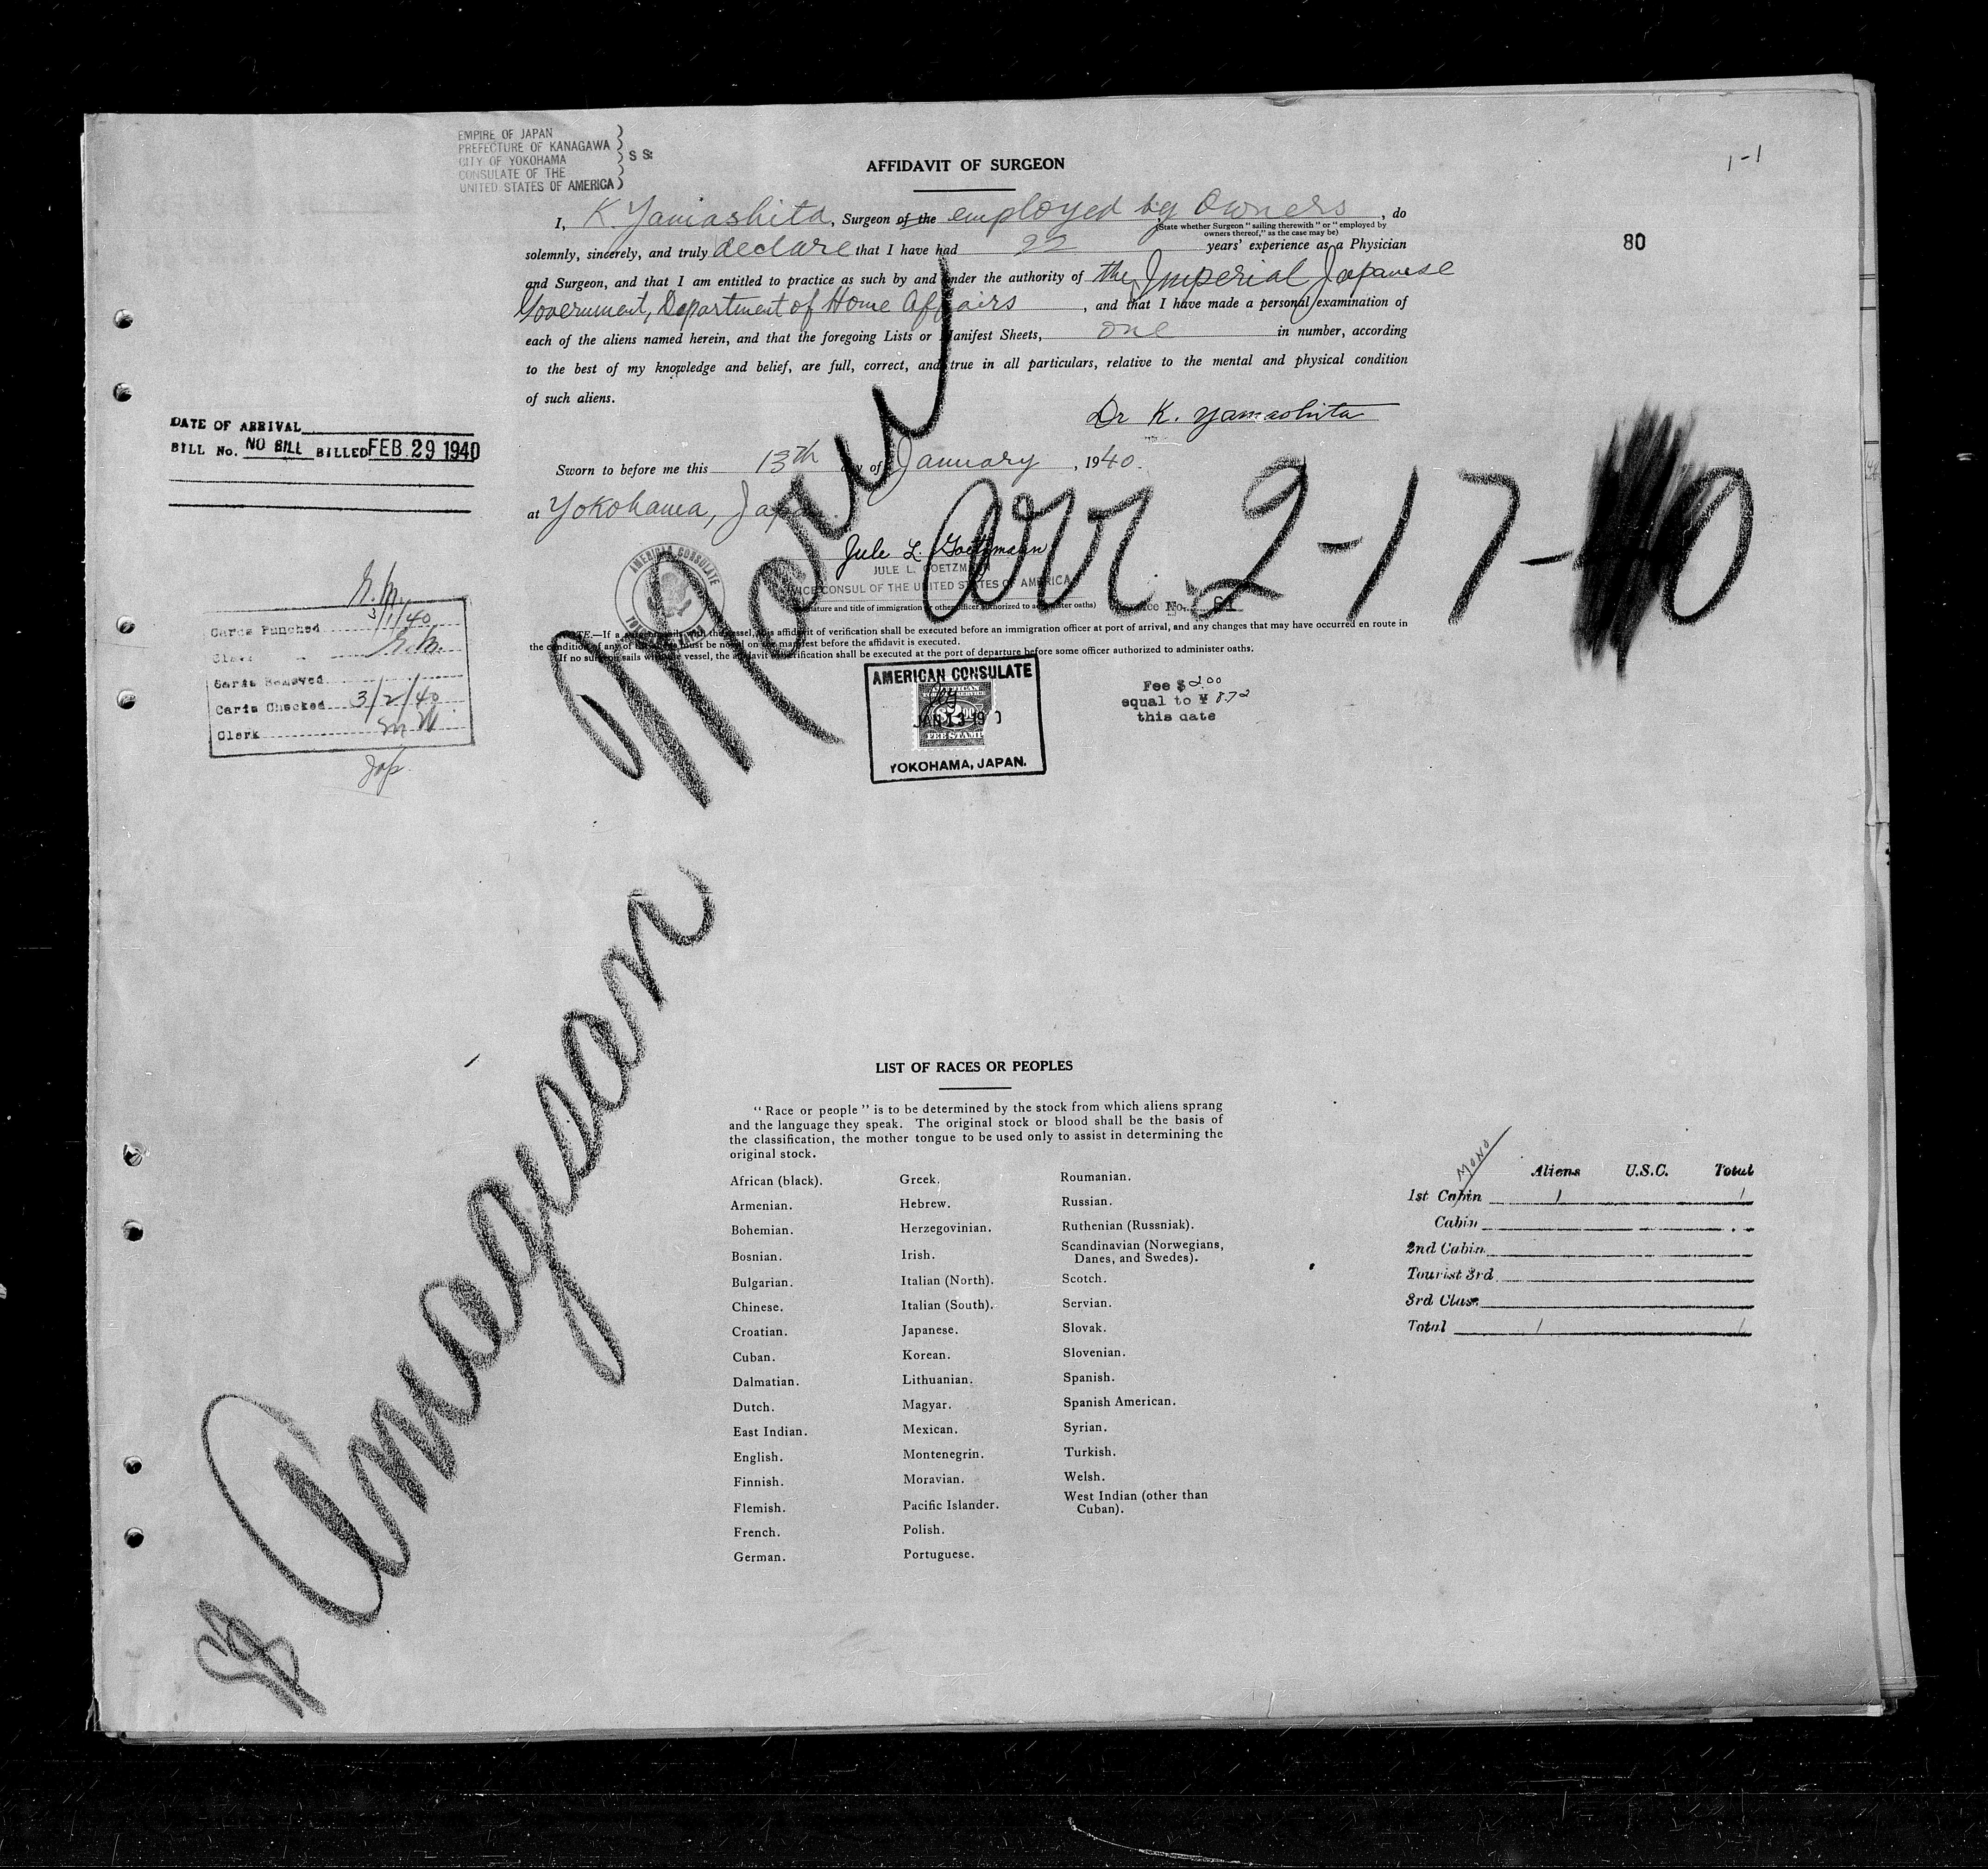 EMPIRE OF JAPAN
PREFECTURE OF KANAGAWA
CITY OF YOKOHAMA
CONSULATE OF THE
UNITED STATES OF AMERICA
S S:
AFFIDAVIT OF SURGEON
1-1
80
I, K Yamashita, Surgeon of the employed by Owners, do
(State whether Surgeon "sailing therewith" or "employed by
owners thereof," as the case may be)
solemnly, sincerely, and truly declare that I have had 22 years' experience as a Physician
and Surgeon, and that I am entitled to practice as such by and under the authority of the Imperial Japanese
Government, Department of Home Affairs, and that I have made a personal examination of
each of the aliens named herein, and that the foregoing Lists or Manifest Sheets, one in number, according
to the best of my knowledge and belief, are full, correct, and true in all particulars, relative to the mental and physical condition
of such aliens.
Dr K. Yamashita
DATE OF ARRIVAL
BILL No. NO BILL BILLED FEB 29 1940
Sworn to before me this 13th day of January, 1940.
at Yokohama, Japan.
Arr 2-17-40
Jule L. Goetzmann
JULE L. GOETZMANN
VICE CONSUL OF THE UNITED STATES OF AMERICA
(Signature and title of immigration or other officer authorized to administer oaths)
Service No. 64
AMERICAN CONSULATE
NOTE.—If a surgeon sails with the vessel, this affidavit of verification shall be executed before an immigration officer at port of arrival, and any changes that may have occurred en route in
the condition of any of the aliens must be noted on the manifest before the affidavit is executed.
If no surgeon sails with the vessel, the affidavit of verification shall be executed at the port of departure before some officer authorized to administer oaths.
Cards Punched 3/1/40
Cards Removed
Cards Checked 3/2/40
Clerk
Jap.
AMERICAN CONSULATE
JAN 13 19 0
FEE STAMP
YOKOHAMA, JAPAN.
Fee $ 2.00
equal to ¥ 8.72
this date
SS Amagisan Maru
LIST OF RACES OR PEOPLES
"Race or people" is to be determined by the stock from which aliens sprang
and the language they speak. The original stock or blood shall be the basis of
the classification, the mother tongue to be used only to assist in determining the
original stock.
African (black).
Armenian.
Bohemian.
Bosnian.
Bulgarian.
Chinese.
Croatian.
Cuban.
Dalmatian.
Dutch.
East Indian.
English.
Finnish.
Flemish.
French.
German.
Greek.
Hebrew.
Herzegovinian.
Irish.
Italian (North).
Italian (South).
Japanese.
Korean.
Lithuanian.
Magyar.
Mexican.
Montenegrin.
Moravian.
Pacific Islander.
Polish.
Portuguese.
Roumanian.
Russian.
Ruthenian (Russniak).
Scandinavian (Norwegians,
Danes, and Swedes).
Scotch.
Servian.
Slovak.
Slovenian.
Spanish.
Spanish American.
Syrian.
Turkish.
Welsh.
West Indian (other than
Cuban).
MONO
Aliens U.S.C. Total
1st Cabin 1 1
Cabin
2nd Cabin
Tourist 3rd
3rd Class
Total 1 1